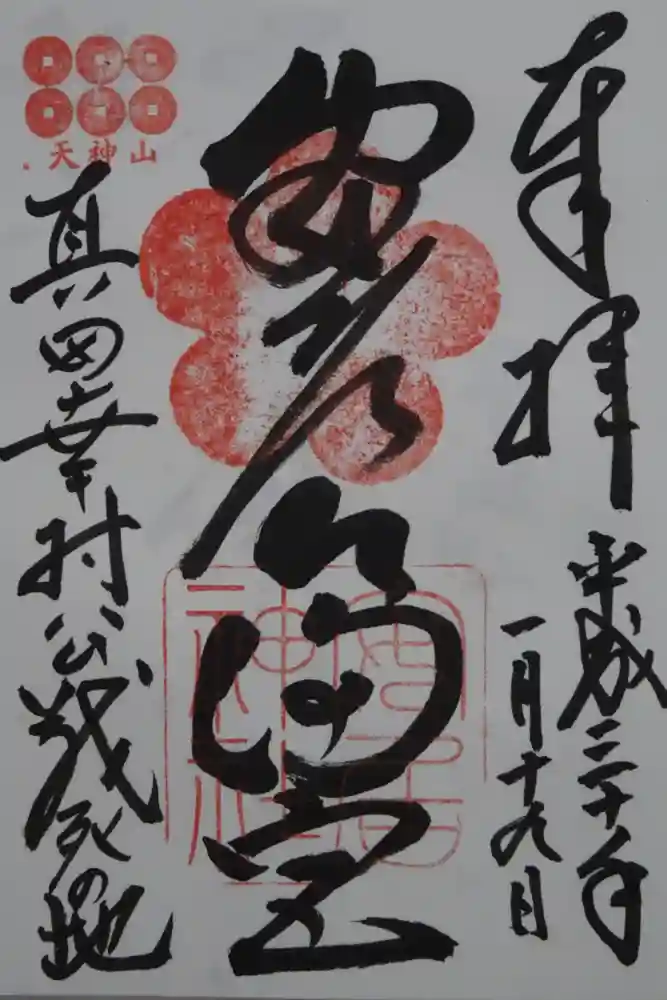 奉拝
平成三十年
一月十九日
安居天満宮
安居神社
天神山
真田幸村公戦死の地